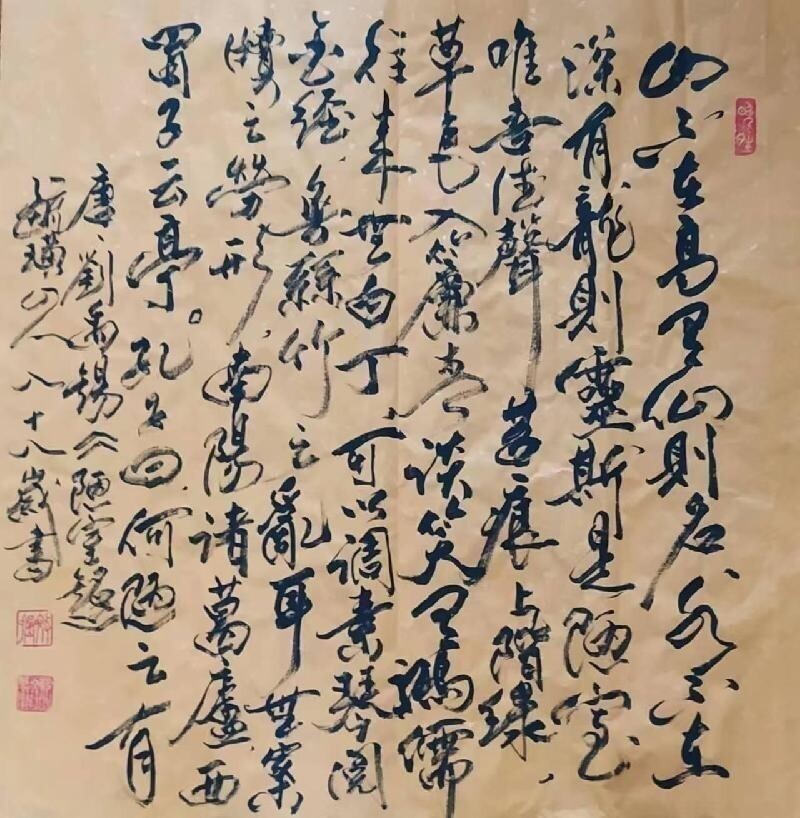 山不在高有仙則名水不在
深有龍則靈斯是陋室
唯吾德馨苔痕上階綠
草色入簾青談笑有鴻儒
往來無白丁可以調素琴閱
金經無絲竹之亂耳無案
牘之勞形南陽諸葛廬西
蜀子云亭孔子曰何陋之有
唐劉禹錫之陋室銘
毓璜山人八十八歲書